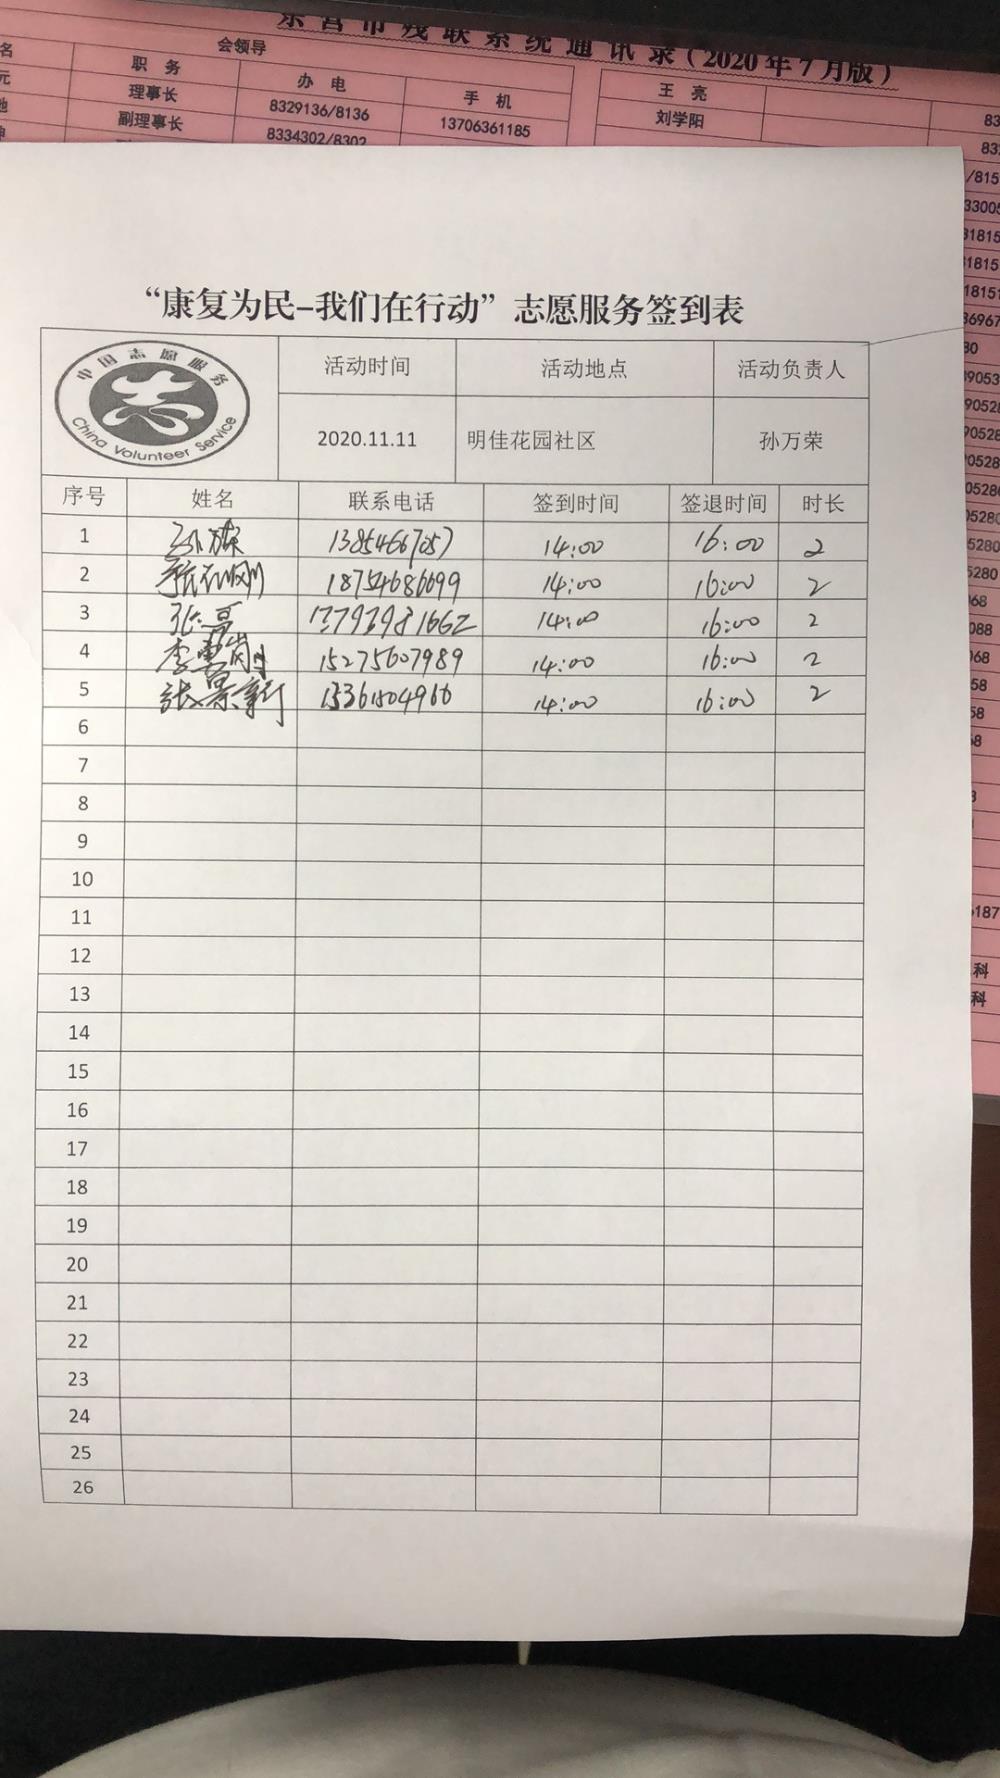 东营市残联系统通讯录（2020年7月版）
名 会领导
职务 办电 手机 王亮
元 理事长 8329136/8136 13706361185 刘学阳 83
副理事长 8334302/8302
/815
33005
31815
1815
18151
36967
30
89053
90528
90528
0528
05280
05280
5280
5280
068
088
068
58
58
58
6187
科
科
“康复为民-我们在行动”志愿服务签到表
中国志愿服务
China Volunteer Service
活动时间 活动地点 活动负责人
2020.11.11 明佳花园社区 孙万荣
序号 姓名 联系电话 签到时间 签退时间 时长
1 14:00 16:00 2
2 18754686699 14:00 16:00 2
3 张 14:00 16:00 2
4 李 15275607989 14:00 16:00 2
5 张景新 14:00 16:00 2
6
7
8
9
10
11
12
13
14
15
16
17
18
19
20
21
22
23
24
25
26